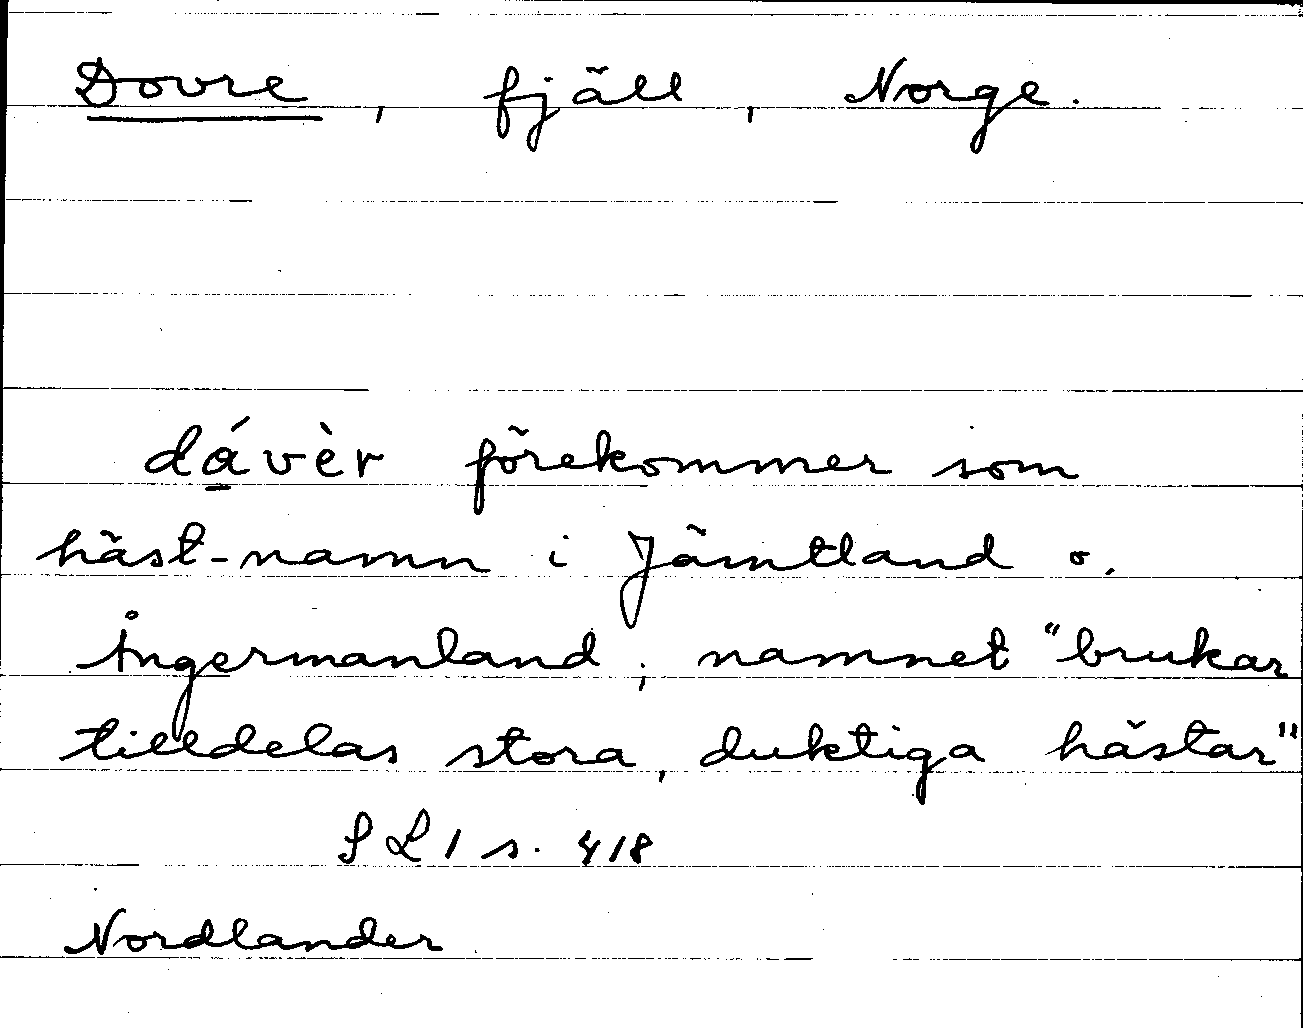 Dovre, fjäll, Norge.
dá̱vèr förekommer som
häst-namn i Jämtland o.
Ångermanland; namnet "brukar
tilldelas stora, duktiga hästar"
SL 1 s. 418
Nordlander